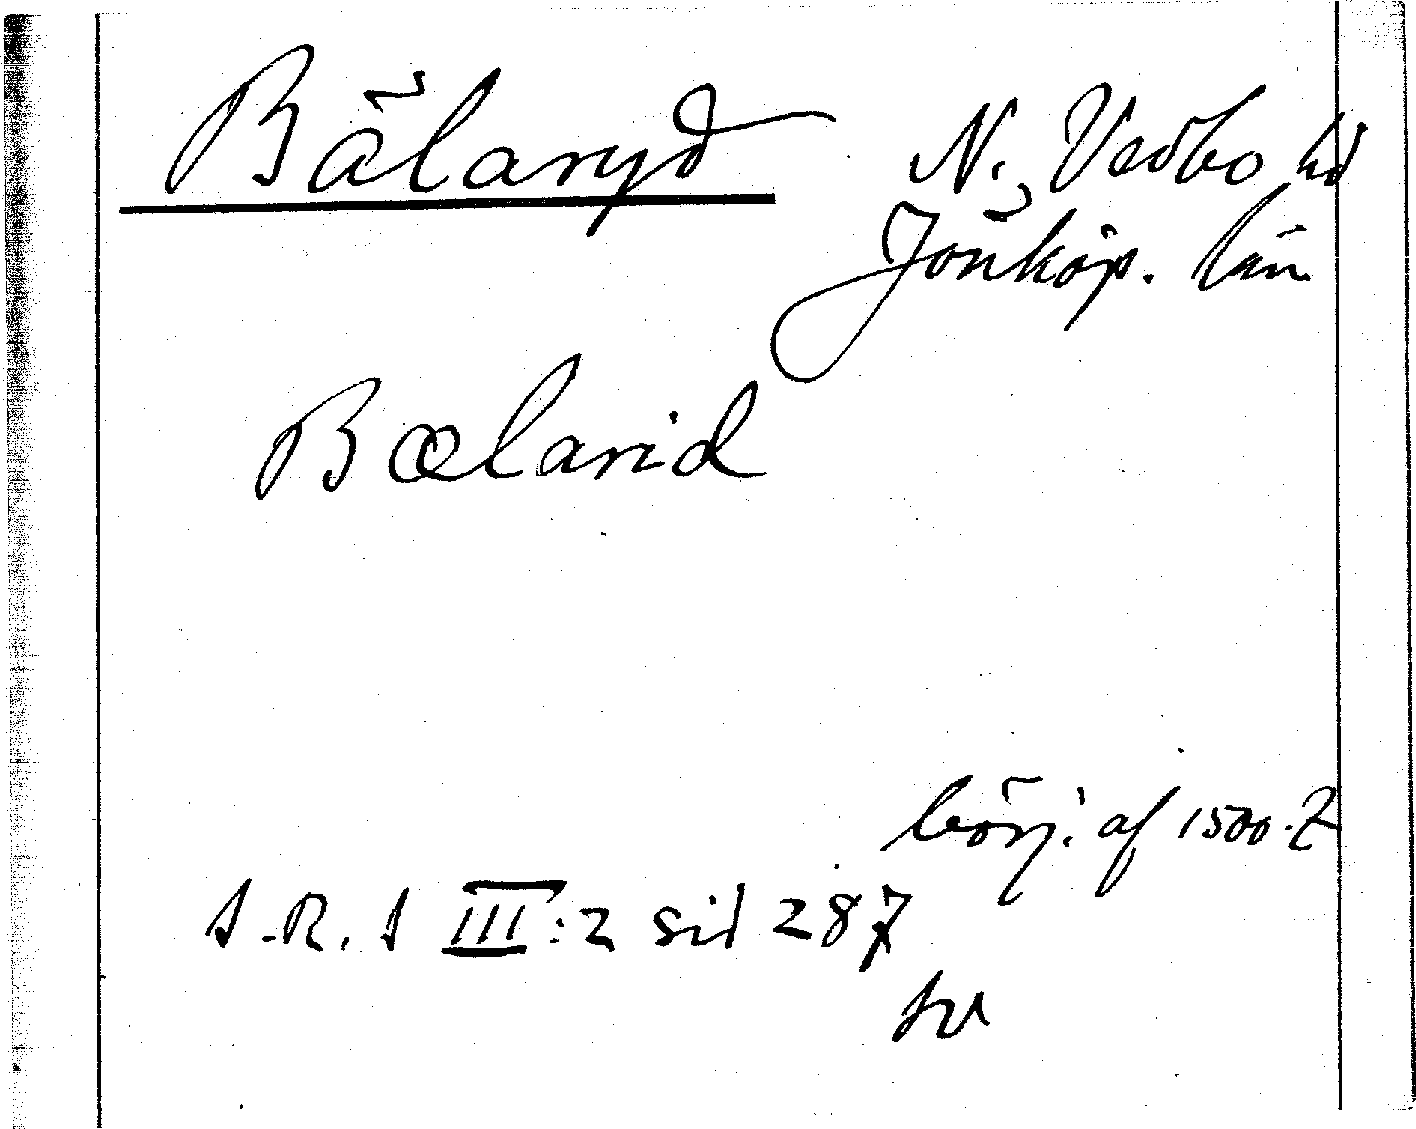 Bälaryd N. Vedbo hd
Jönköp. län
Bœlarid
börj. af 1500-t
S.R.S III:2 sid 287